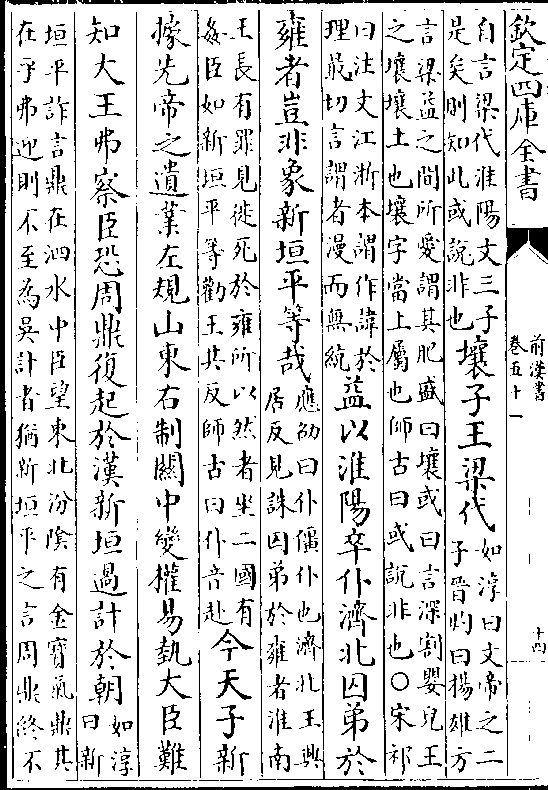 欽定四庫全書
前漢書
卷五十一
十四
自言梁代淮陽文三子
是矣則知此或說非也
壤子王梁代
如淳曰文帝之二
子晉灼曰楊雄方
言梁益之間所愛謂其肥盛曰壤或曰言深割嬰兒王
之壤壤土也壤字當上屬也師古曰或說非也○宋祁
曰注文江浙本謂作諱於
理最切言謂者漫而無統
益以淮陽卒仆濟北囚弟於
雍者豈非象新垣平等哉
應劭曰仆僵仆也濟北王興
居反見誅囚弟於雍者淮南
王長有罪見徙死於雍所以然者坐二國有
姦臣如新垣平等勸王共反師古曰仆音赴
今天子新
據先帝之遺業左規山東右制關中變權易埶大臣難
知大王弗察臣恐周鼎復起於漢新垣過計於朝
如淳
曰新
垣平詐言鼎在泗水中臣望東北汾陰有金寶氣鼎其
在乎弗迎則不至為吳計者猶新垣平之言周鼎終不